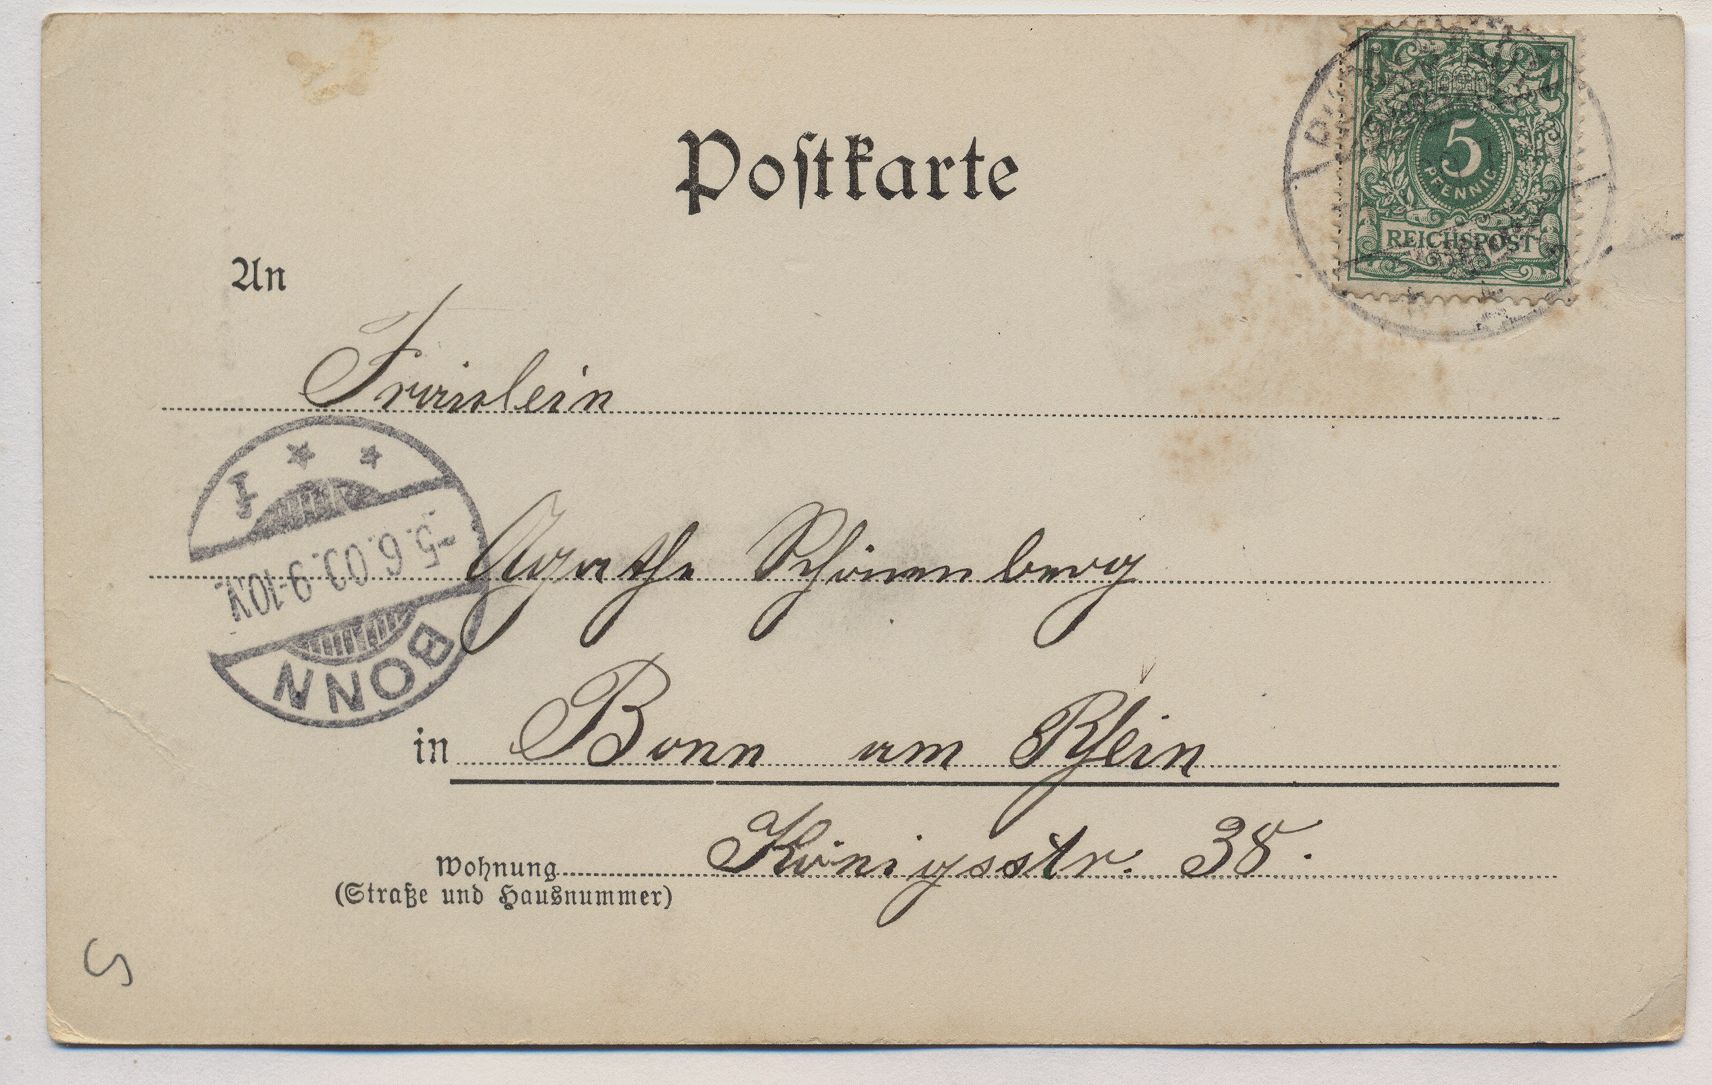 Postkarte
5
PFENNIG
REICHSPOST
An
Fräulein
Agathe Schönenberg
in Bonn am Rhein
Wohnung Königsstr. 38.
(Straße und Hausnummer)
BONN
9-10V.
1